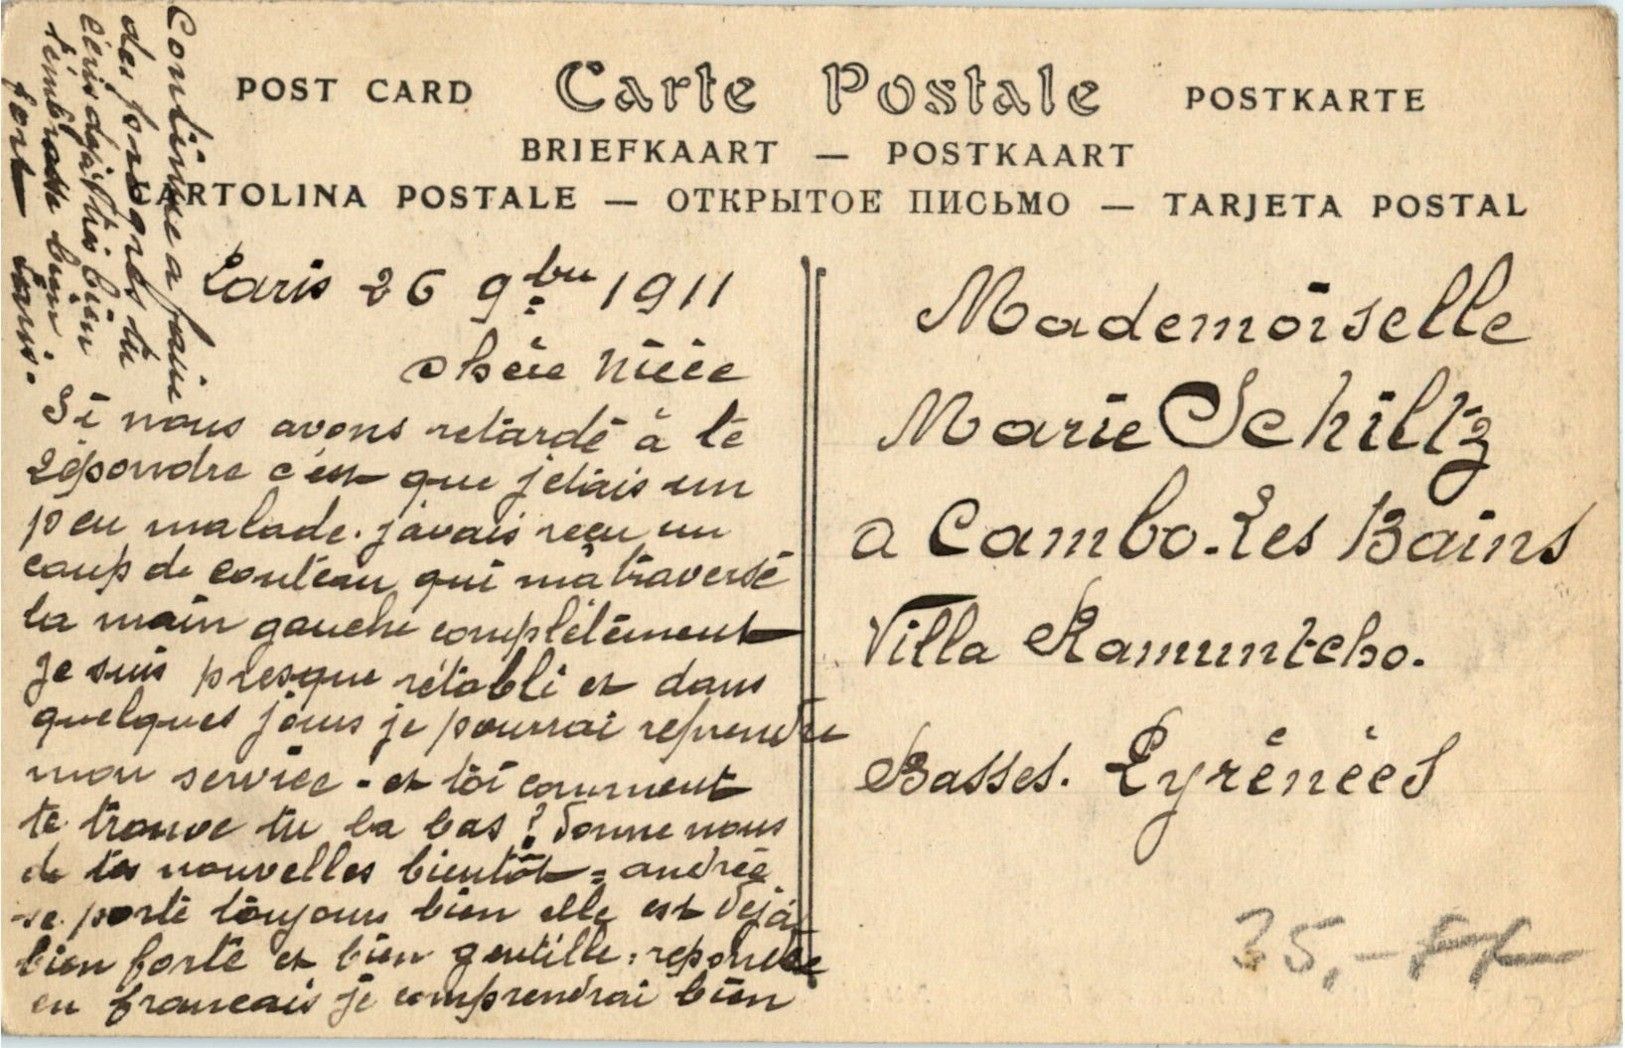 POST CARD Carte Postale POSTKARTE
BRIEFKAART — POSTKAART
CARTOLINA POSTALE — ОТКРЫТОЕ ПИСЬМО — TARJETA POSTAL
Paris 26 9bre 1911
chère nièce
Si nous avons retardé à te
répondre c'est que j'étais un
peu malade. j'avais reçu un
coup de couteau qui m'a traversé
la main gauche complétément
je suis presque rétabli et dans
quelques jours je pourrai reprendre
mon service - et toi comment
te trouve tu la bas? donne nous
de tes nouvelles bientôt = andrée
se porte toujours bien elle est déjà
bien forte et bien gentille: reponse
en francais je comprendrai bien
Continue a faire
des progrès tu
écris déjà très bien
t'embrasse bien
fort
Mademoiselle
Marie Schiltz
a Cambo-Les Bains
Villa Ramuntcho.
Basses. Pyrénées
35,- FF